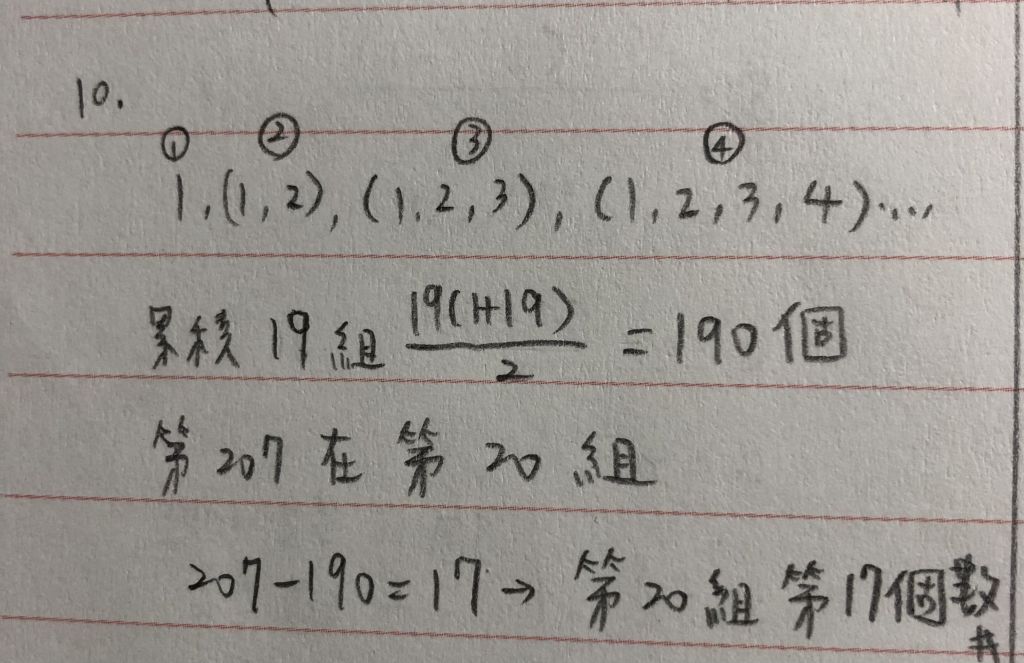 10.
① ② ③ ④
1,(1,2),(1,2,3),(1,2,3,4)....
累積 19 組 19(1+19)/2 = 190 個
第 207 在 第 20 組
207-190=17→ 第 20 組 第 17 個數
#